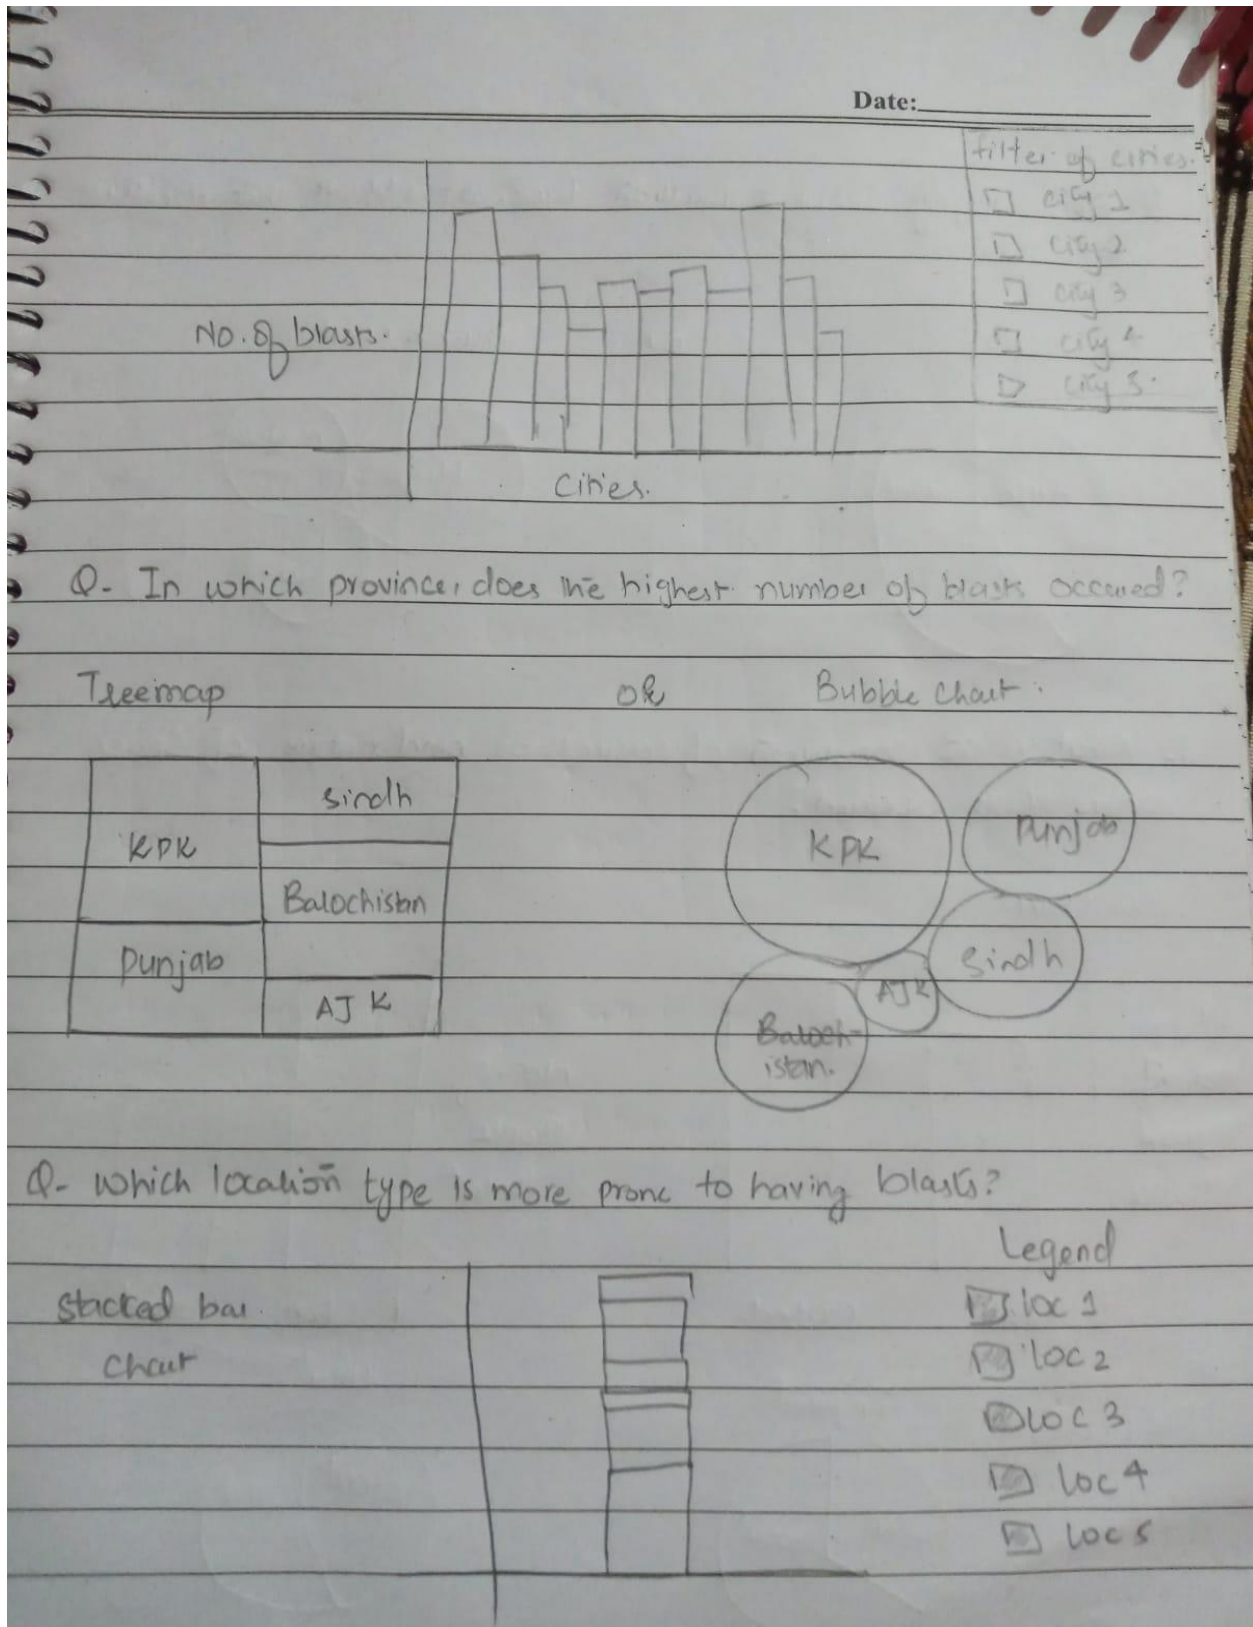 Date:
filter of cities.
city 1
city 2
city 3
city 4
city 5.
No. of blasts.
Cities.
Q- In which province, does the highest number of blasts occured?
Treemap OR Bubble Chart.
KPK
Sindh
Balochistan
Punjab
AJK
KPK
Punjab
Sindh
AJK
Baloch-
istan.
Q- which location type is more prone to having blasts?
Legend
stacked bar
chart
loc 1
loc 2
loc 3
loc 4
loc 5